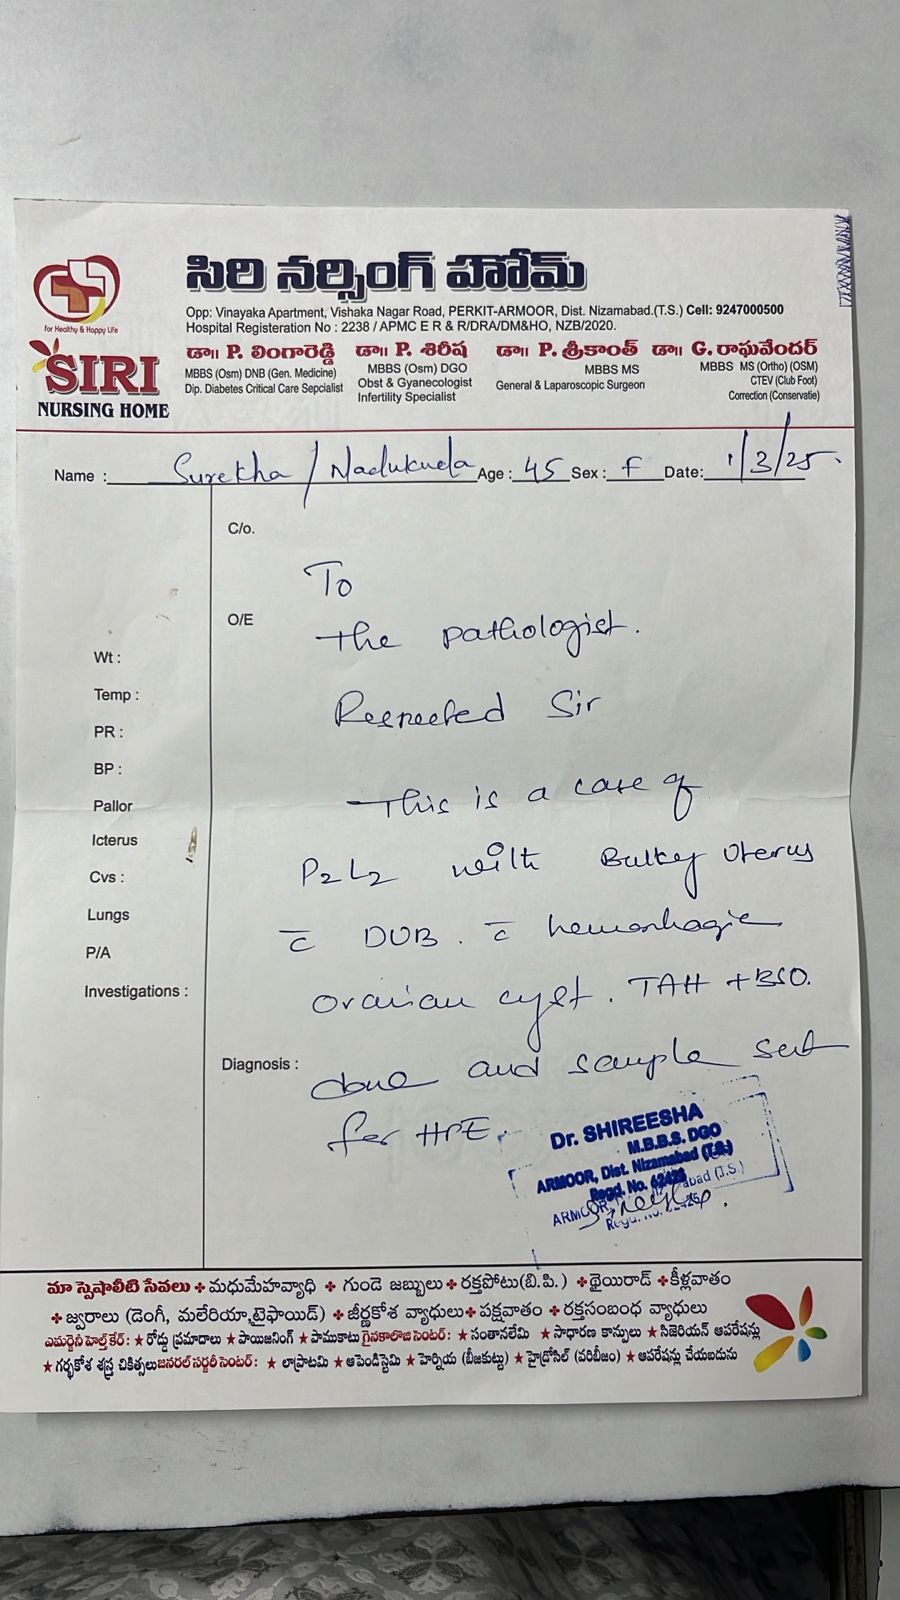 సిరి నర్సింగ్ హోమ్
for Healthy & Happy Life
Opp: Vinayaka Apartment, Vishaka Nagar Road, PERKIT-ARMOOR, Dist. Nizamabad.(T.S.) Cell: 9247000500
Hospital Registeration No : 2238 / APMC E R & R/DRA/DM&HO, NZB/2020.
SIRI
NURSING HOME
డా॥ P. లింగారెడ్డి
MBBS (Osm) DNB (Gen. Medicine)
Dip. Diabetes Critical Care Sepcialist
డా॥ P. శిరీష
MBBS (Osm) DGO
Obst & Gyanecologist
Infertility Specialist
డా॥ P. శ్రీకాంత్
MBBS MS
General & Laparoscopic Surgeon
డా॥ G. రాఘవేందర్
MBBS MS (Ortho) (OSM)
CTEV (Club Foot)
Correction (Conservatie)
Name : Surekha / Nadukuda Age : 45 Sex : F Date: 1/3/25.
C/o.
To
O/E
The pathologist.
Wt :
Temp :
Respected Sir
PR :
BP :
Pallor
This is a case of
Icterus
P2L2 with Bulky Uterus
Cvs :
Lungs
c̅ DUB. c̅ hemorrhagic
P/A
Investigations :
ovarian cyst. TAH + BSO.
Diagnosis :
done and sample sent
for HPE.
Dr. SHIREESHA
M.B.B.S. DGO
ARMOOR, Dist. Nizamabad (T.S.)
Regd. No. 62425
మా స్పెషాలిటి సేవలు ✤ మధుమేహవ్యాధి ✤ గుండె జబ్బులు ✤ రక్తపోటు(బి.పి.) ✤ థైయిరాడ్ ✤ కీళ్లవాతం
✤ జ్వరాలు (డెంగీ, మలేరియా,టైఫాయిడ్) ✤ జీర్ణకోశ వ్యాధులు ✤ పక్షవాతం ✤ రక్తసంబంధ వ్యాధులు
ఎమర్జెన్సీ హెల్త్ కేర్ : ★ రోడ్డు ప్రమాదాలు ★ పాయిజనింగ్ ★ పాముకాటు గైనకాలాజి సెంటర్ : ★ సంతానలేమి ★ సాధారణ కాన్పులు ★ సిజెరియన్ ఆపరేషన్లు
★ గర్భకోశ శస్త్ర చికిత్సలు జనరల్ సర్జరీ సెంటర్ : ★ లాప్రాటమి ★ అపెండిస్టెమి ★ హెర్నియ (బీజకుట్టు) ★ హైడ్రోసిల్ (వరిబీజం) ★ ఆపరేషన్లు చేయబడును